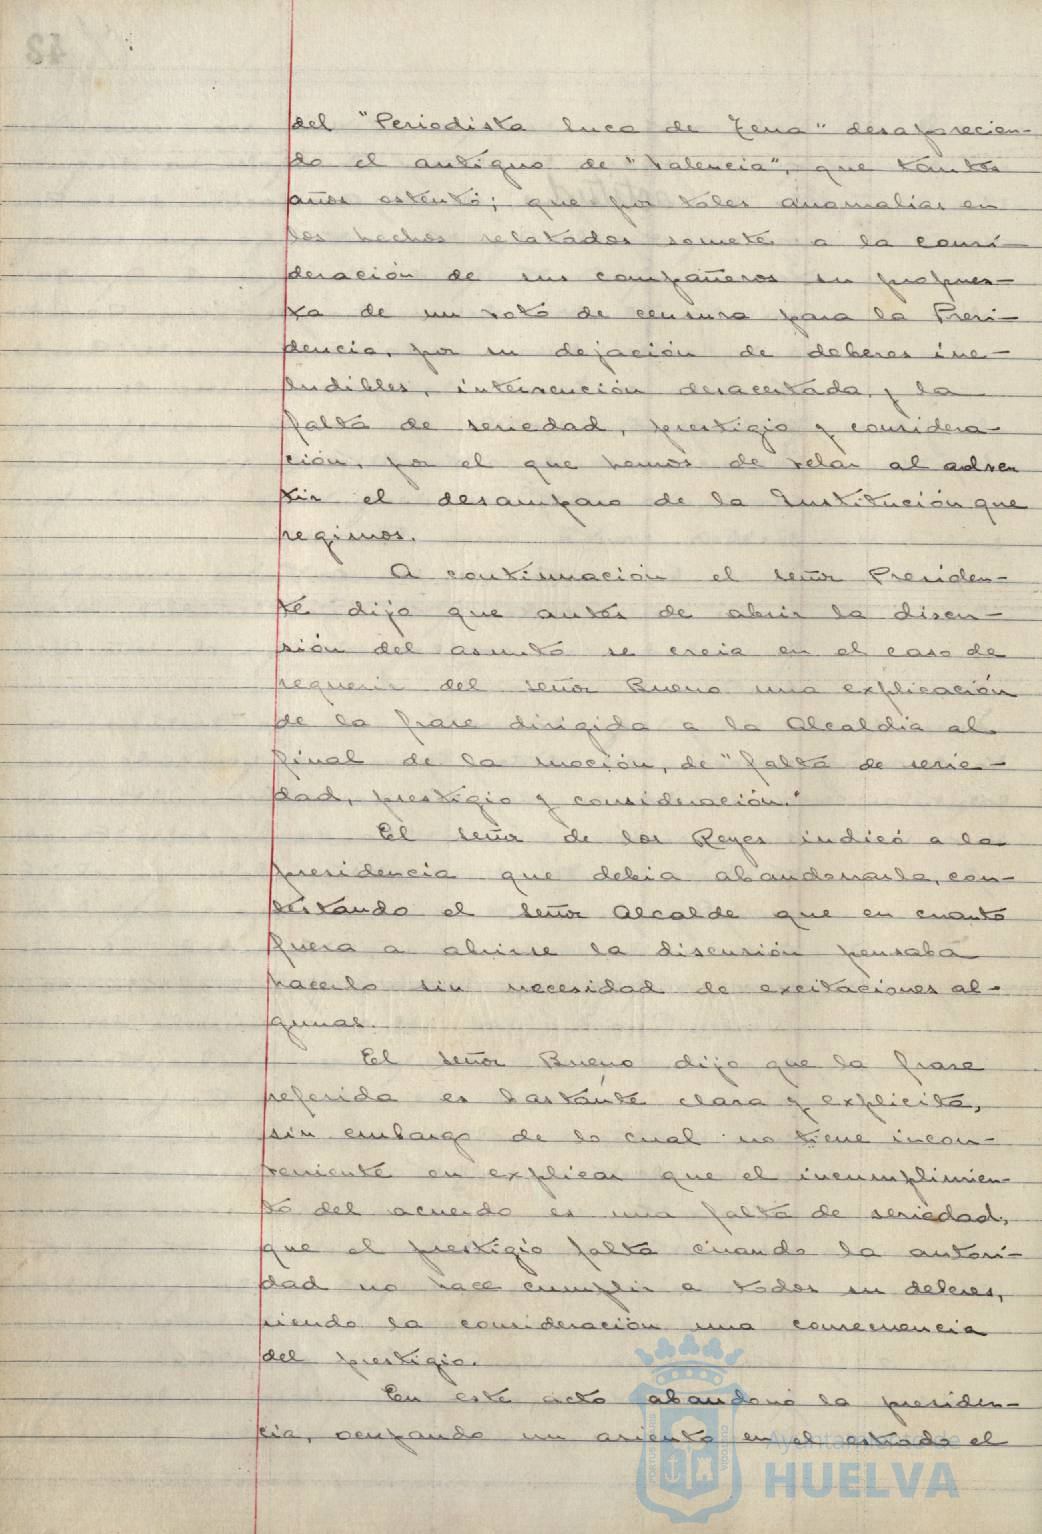 del "Periodista Luca de Tena" desaparecien-
do el antiguo de "Valencia", que tantos
años ostentó; que por tales anomalias en
los hechos relatados somete a la consi-
deración de sus compañeros su propues-
ta de un voto de censura para la Presi-
dencia, por su dejación de deberes ine-
ludibles, intervención desacertada, y la
falta de seriedad, prestigio y considera-
ción, por el que hemos de velar al adver
tir el desamparo de la Institución que
regimos.
A continuación el señor Presiden-
te dijo que antes de abrir la discu-
sión del asunto se creia en el caso de
requerir del señor Bueno una explicación
de la frase dirigida a la Alcaldia al
final de la moción, de "falta de serie-
dad, prestigio y consideración."
El señor de los Reyes indicó a la
presidencia que debia abandonarla, con-
testando el señor Alcalde que en cuanto
fuera a abrirse la discusión pensaba
hacerlo sin necesidad de excitaciones al-
gunas.
El señor Bueno dijo que la frase
referida es bastante clara y explicita,
sin embargo de lo cual no tiene incon-
veniente en explicar que el incumplimien-
to del acuerdo es una falta de seriedad,
que el prestigio falta cuando la autori-
dad no hace cumplir a todos su deberes,
siendo la consideración una consecuencia
del prestigio.
En este acto abandonó la presiden-
cia, ocupando un asiento en el estrado el
Ayuntamiento de
HUELVA